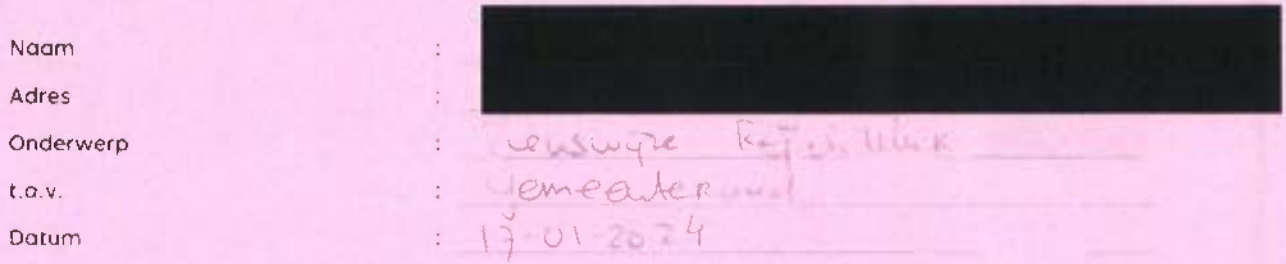 Naam :
Adres :
Onderwerp : zienswijze
t.a.v. : Gemeenteraad
Datum : 17-01-2024